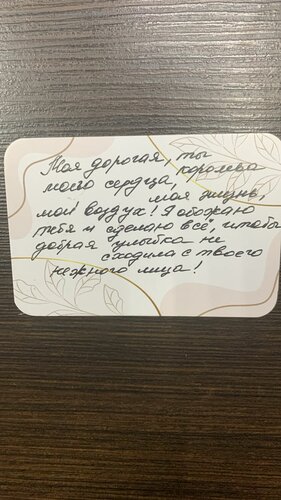 Моя дорогая, ты
моего сердца, королева
моя жизнь,
мой воздух! Я обожаю
тебя и сделаю всё, чтобы
добрая улыбка не
сходила с твоего
нежного лица!